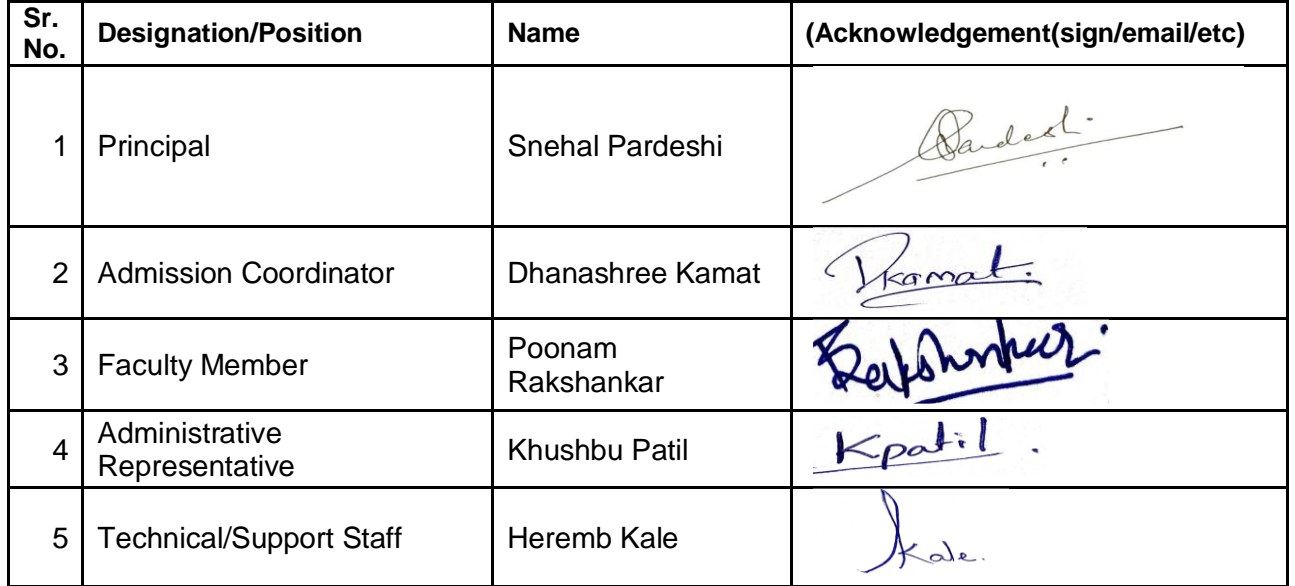 Sr. No. Designation/Position Name (Acknowledgement(sign/email/etc)
1 Principal Snehal Pardeshi Pardeshi
2 Admission Coordinator Dhanashree Kamat Dkamat.
3 Faculty Member Poonam Rakshankar Rakshankar
4 Administrative Representative Khushbu Patil Kpatil.
5 Technical/Support Staff Heremb Kale Kale.